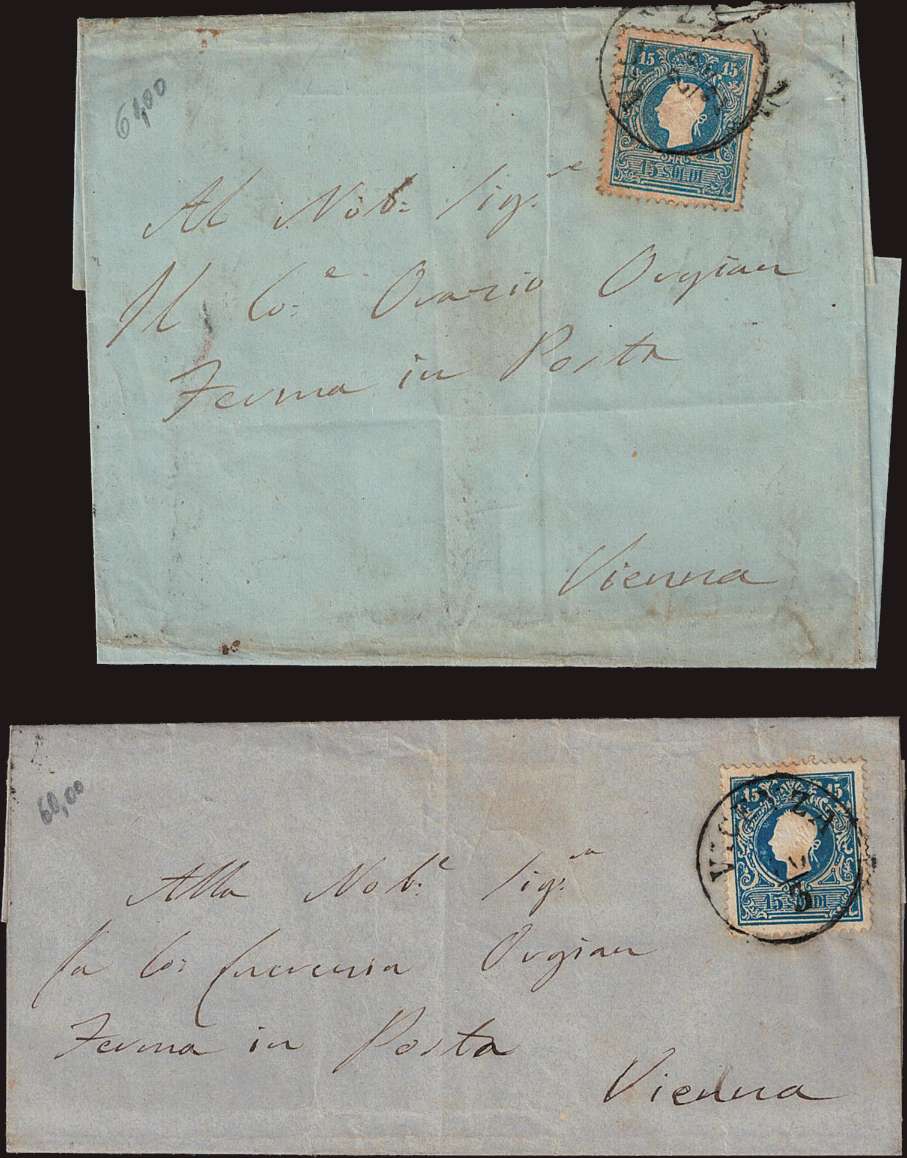 61,00
15 15
15 SOLDI
Al Nob:e Sig:re
Il Co:e Orazio Orgian
Ferma in Posta
Vienna
60,00
15 15
VICENZA
15 SOLDI
Alla Nob:e Sig:ra
La Co: Orgian
Ferma in Posta
Vienna